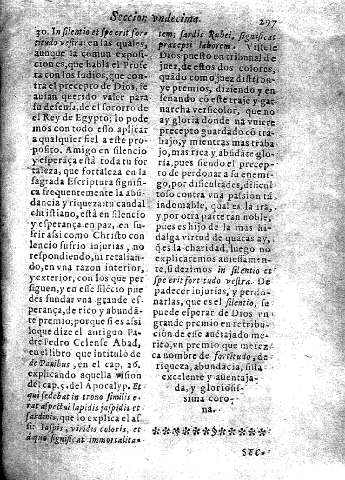 Seccion vndecima. 297
30. In silentio et spe erit for
titudo vestra: en las quales,
aunque la comun exposi-
cion es, que habla el Profe
ta con los Iudios, que con-
tra el precepto de Dios, se
auian querido valer para
su defensa, de el socorro de
el Rey de Egypto; lo po de
mos con todo esto aplicar
a qualquier fiel a este pro-
posito. Amigo en silencio
y esperãça està toda tu for
taleza, que fortaleza en la
sagrada Escriptura signifi
ca frequentemente la abũ
dancia y riqueza: tu caudal
christiano, està en silencio
y esperança en paz, en su-
frir assi como Christo con
silencio sufrio injurias, no
respondiendo, ni retalian-
do, en vna razon interior,
y exterior, con los que per
siguen, y en este silẽcio pue
des fundar vna grande es-
perança, de rico y abundã-
te premio; porque si es assi
lo que dize el antiguo Pa-
dre Pedro Celense Abad,
en el libro que intituló de
de Panibus, en el cap. 26.
explicando aquella vision
del cap. 5. del Apocalyp. Et
qui sedebat in throno similis e-
rat aspectui lapidis jaspidis et
sardinis, que lo explica el as-
si: Iaspis, viridis coloris, et
aquo significat immortalita-
tem; sardis Rubei, significat
præcepti laborem. Visteſe
Dios puesto en tribunal de
juez, de estos dos colores,
quãdo como juez distribu-
ye premios, diziendo y en
señando cõ este traje y gar
nacha versicolor, que no
ay gloria donde nà vuiere
precepto guardado cõ tra-
bajo, y mientras mas traba
jo, mas rica y abũdãte glo-
ria, pues siendo el precep-
to de perdonar a su enemi-
go, por dificultades, dificul
toso contra vna passion tã
indomable, qual es la irà,
y por otra parte tan noble,
pues es hijo de la mas hi-
dalga virtud de quatas ay,
q̃ es la charidad, luego no
explicaremos
si dezimos in silentio et
spe erit fortitudo vestra. De
padecer injurias, y perdo-
narlas, que es el silentio, se
puede esperar de Dios vn
grande premio en retribu-
ciõ de esse auctajado me-
rito, vn premio que merez
ca nombre de fortitudo, de
riqueza, abundãcia, silla
excelente y auentaja-
da, y gloriosis-
sima coro-
na.
SEC-